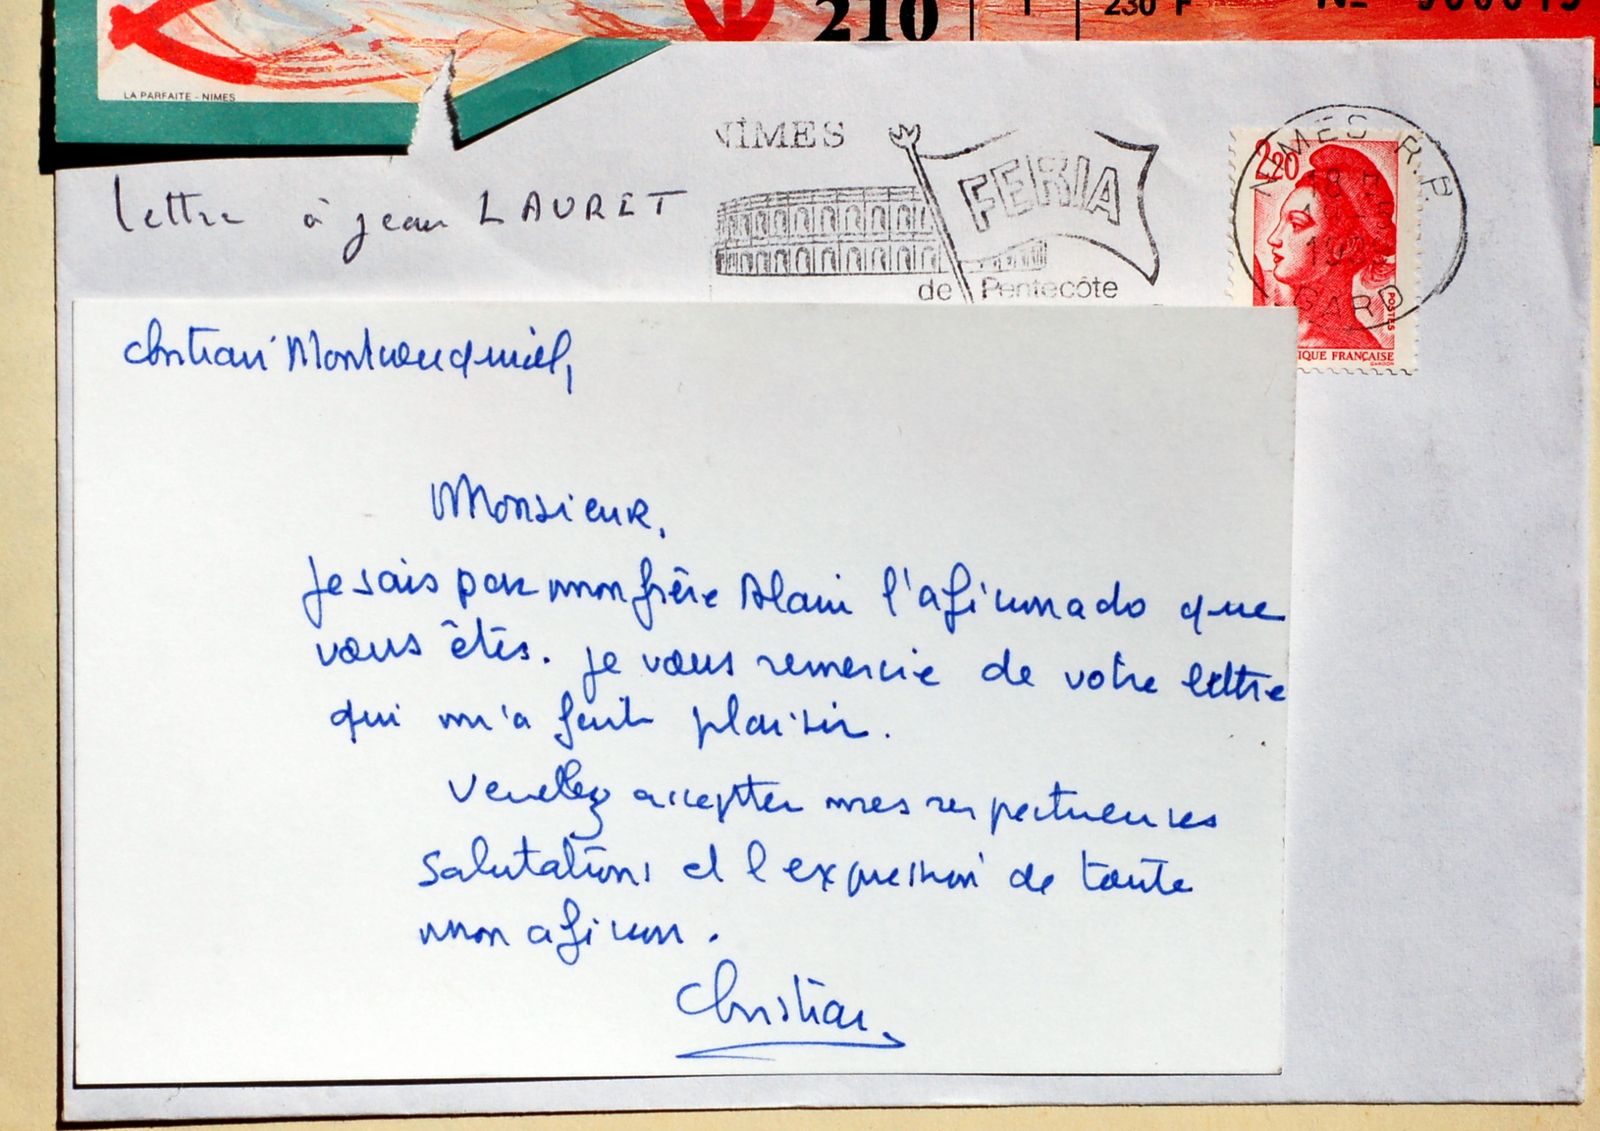 210
230 F
LA PARFAITE - NIMES
NIMES
FERIA
de Pentecôte
2,20
NIMES R.P.
18 H
GARD
POSTES
IQUE FRANÇAISE
lettre à jean LAURET
Christian Montcouquiol,
Monsieur,
Je sais par mon frère Alain l'aficionado que
vous êtes. Je vous remercie de votre lettre
qui m'a fait plaisir.
Veuillez accepter mes respectueuses
salutations et l'expression de toute
mon aficion.
Christian